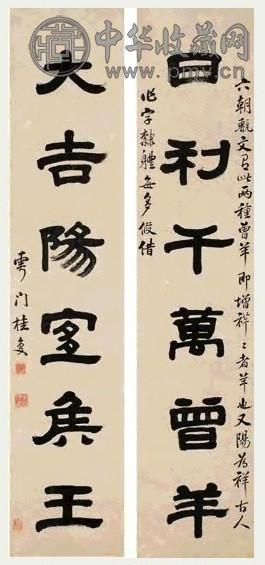 中华收藏网
www.pmv.cn
日利千萬曾羊
六朝甎文有此兩種曾羊即增祥〻者羊也又陽為祥古人
作字隸體每多假借
大吉陽宜侯王
雩門桂馥